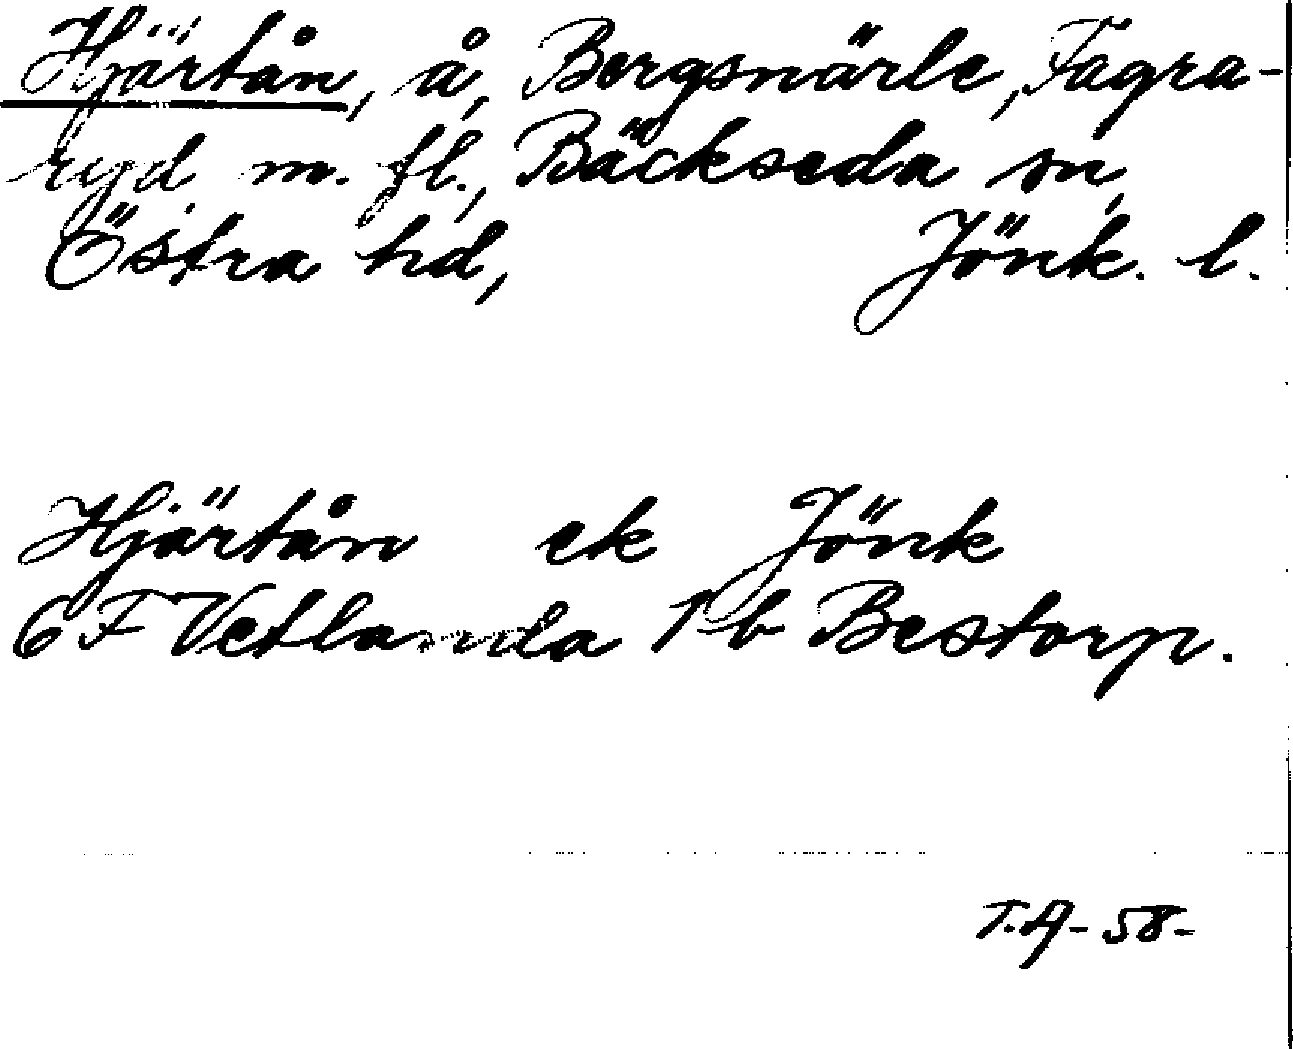 Hjärtån, å, Bergsnärle, Fagra-
ryd m. fl., Bäckseda sn,
Östra hd, Jönk. l.
Hjärtån ek Jönk
6 F Vetlanda 1 b Bestorp.
T.A - 58-